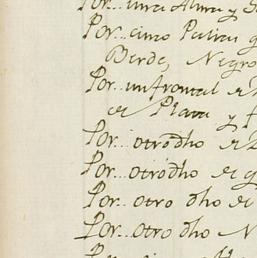 Por... una Alva y
Por... cinco Palias
Berde, Negro
Por... un frontal de
de Plata y f
Por... otro dho de
Por... otro dho de
Por... otro dho de
Por... otro dho N